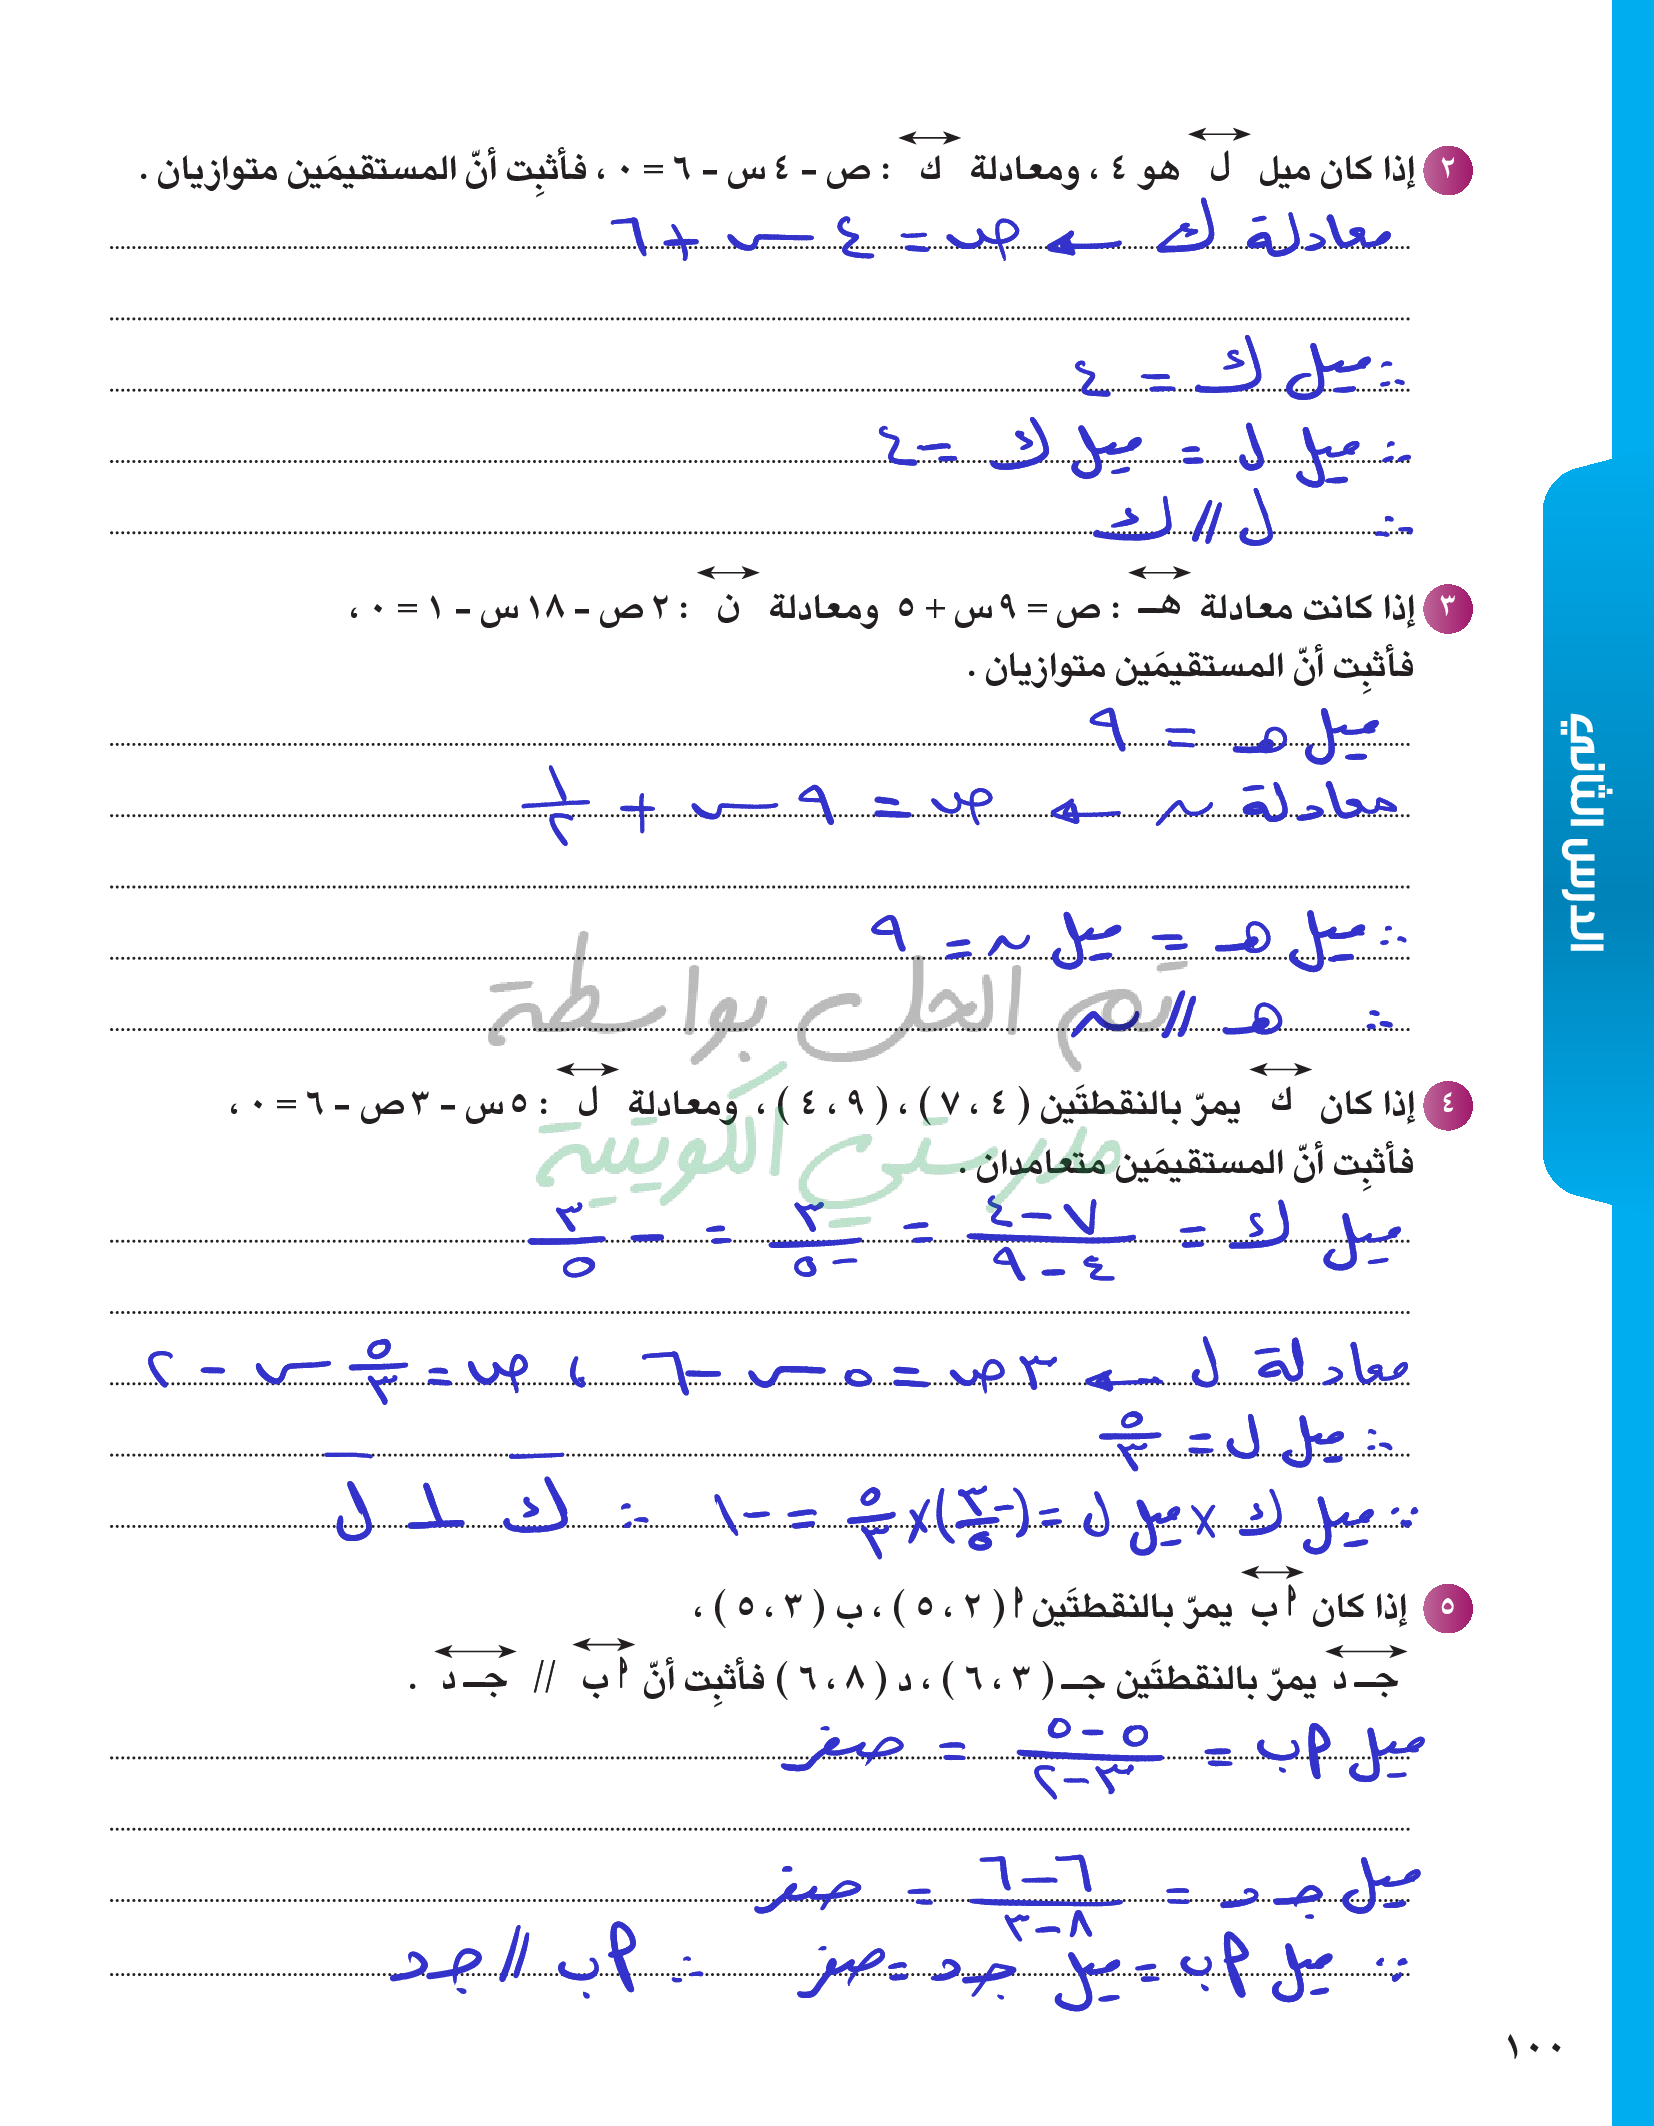 ٢ إذا كان ميل ل هو ٤ ، ومعادلة ك : ص - ٤ س - ٦ = ٠ ، فأثبِت أنّ المستقيمَين متوازيان .
معادلة ك ← ص = ٤ س + ٦
∴ ميل ك = ٤
∴ ميل ل = ميل ك = ٤
∴ ل // ك
٣ إذا كانت معادلة هـ : ص = ٩ س + ٥ ومعادلة ن : ٢ ص - ١٨ س - ١ = ٠ ،
فأثبِت أنّ المستقيمَين متوازيان .
ميل هـ = ٩
معادلة ن ← ص = ٩ س + ١/٢
∴ ميل هـ = ميل ن = ٩
∴ هـ // ن
تم الحل بواسطة
٤ إذا كان ك يمرّ بالنقطتَين ( ٤ ، ٧ ) ، ( ٩ ، ٤ ) ، ومعادلة ل : ٥ س - ٣ ص - ٦ = ٠ ،
فأثبِت أنّ المستقيمَين متعامدان .
مدرستي الكويتية
ميل ك = (٧ - ٤)/(٤ - ٩) = ٣/-٥ = - ٣/٥
معادلة ل ← ٣ ص = ٥ س - ٦ ، ص = ٥/٣ س - ٢
∴ ميل ل = ٥/٣
∵ ميل ك × ميل ل = (-٣/٥) × ٥/٣ = -١ ∴ ك ⊥ ل
٥ إذا كان أ ب يمرّ بالنقطتَين أ ( ٢ ، ٥ ) ، ب ( ٣ ، ٥ ) ،
جـ د يمرّ بالنقطتَين جـ ( ٣ ، ٦ ) ، د ( ٨ ، ٦ ) فأثبِت أنّ أ ب // جـ د .
ميل أ ب = (٥ - ٥)/(٣ - ٢) = صفر
ميل جـ د = (٦ - ٦)/(٨ - ٣) = صفر
∵ ميل أ ب = ميل جـ د = صفر ∴ أ ب // جـ د
الدرس الثاني
١٠٠